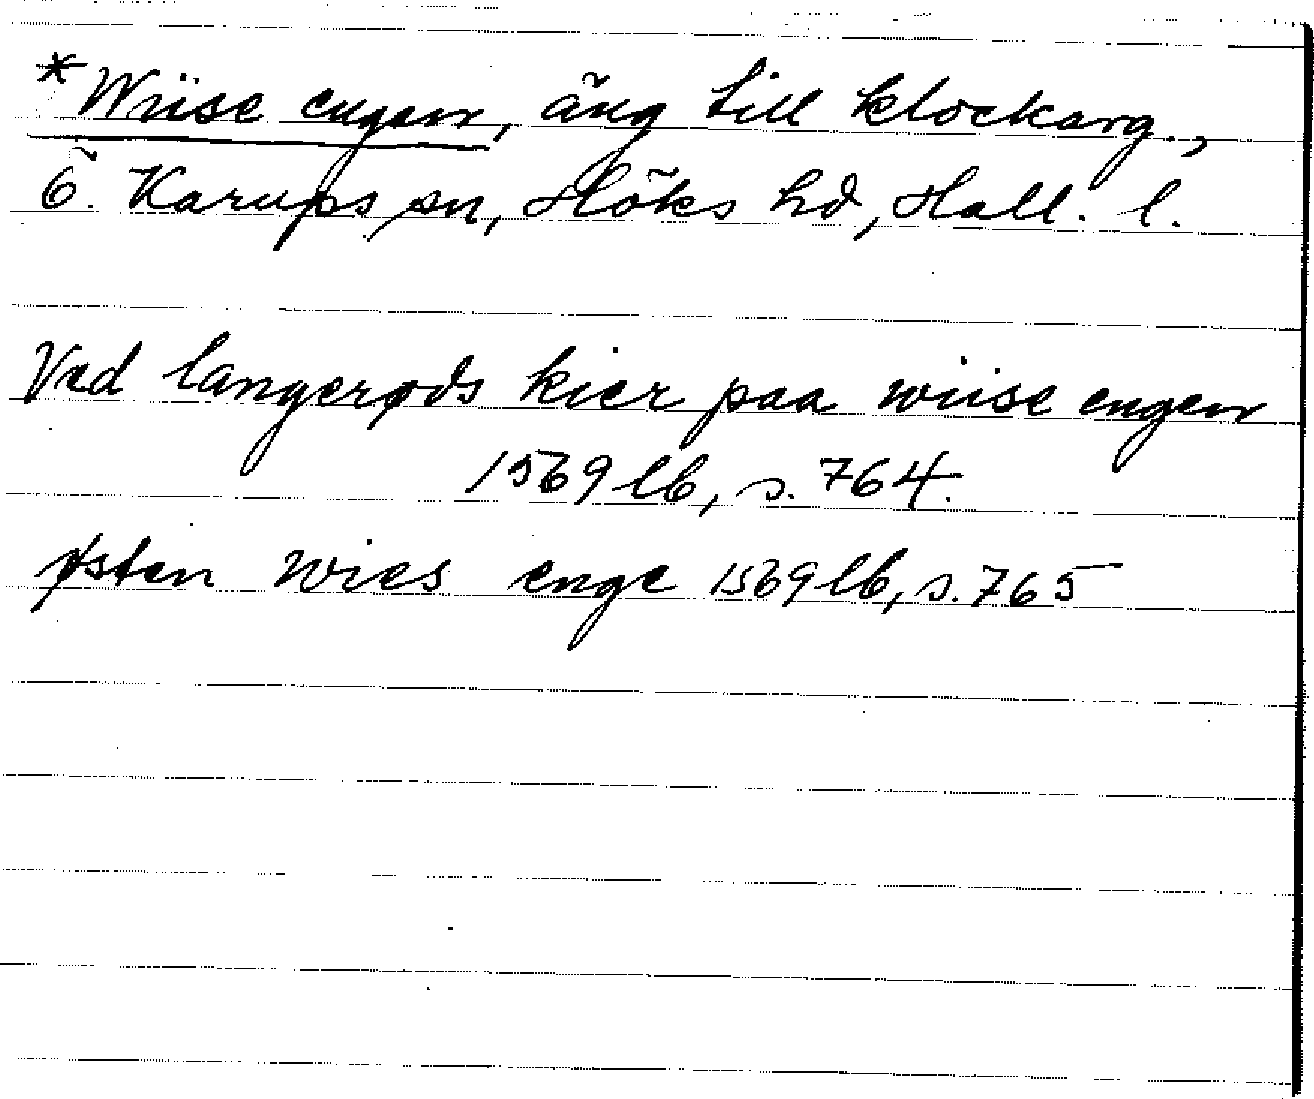 * Wiise engen, äng till klockarg.,
Ö. Karups sn, Höks hd, Hall. l.
Ved langerøds kier paa wiise engen
1569 lb, s. 764.
østen wies enge 1569 lb, s. 765